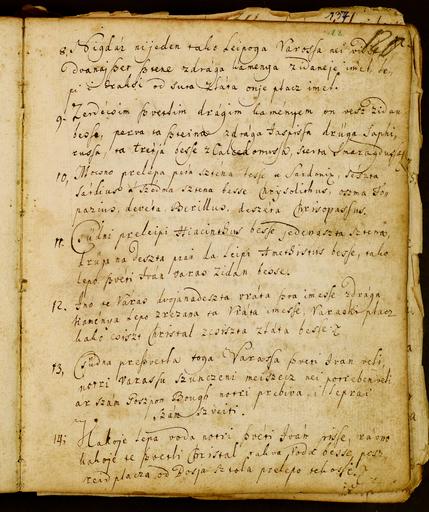 137
8. Nigdar nijeden tako leipoga Varossa nei vidil
dvanajszet sztene zdrága kamenya zidaneje imel, le,
pi i transi od suta zláta onje placz imel.
9. Zevdeisim szvetlim drágim kamenyem on vesz zidan
besse, perva ta szteina zdrága Jaspissa drúga Saphi,
russa, ta treija besse z Calcedonussa, sterta Smaragdussa
10. Mocsno prelepa peta sztena besse u Sárdonix, sesta
Sárdius Szedma sztena besse Chrysolithus, oszma To,
pazius, deveta Berillus, deszeta Chrisopassus.
11. Csudni preleipi Hiacinthus besse jedenaszta sztena,
druga na deszta pak da leipi Amethistus besse, tako
lepo szveti Ivan varas zidan besse.
12. Ino te Varas dvojanadeszta vráta szta imesse zdrága
kamenya lepo zrezana ta vráta imesse, Varaski placz
kako csiszt Christal zcsiszta zláta besse
13, Csudna preszvetla toga Varassa szveti Ivan veli,
notri Varassu szunczeni meiszecz nei potreben veli
ar szam Goszpon Bough notri prebiva, i
szam szveiti.
14; Kakoje lepa voda notri szvéti Iván pisse, ravno
kakoje te szvetli Christal takva voda besse, posz
reid placza od Bosja sztola prelepo tekosse.